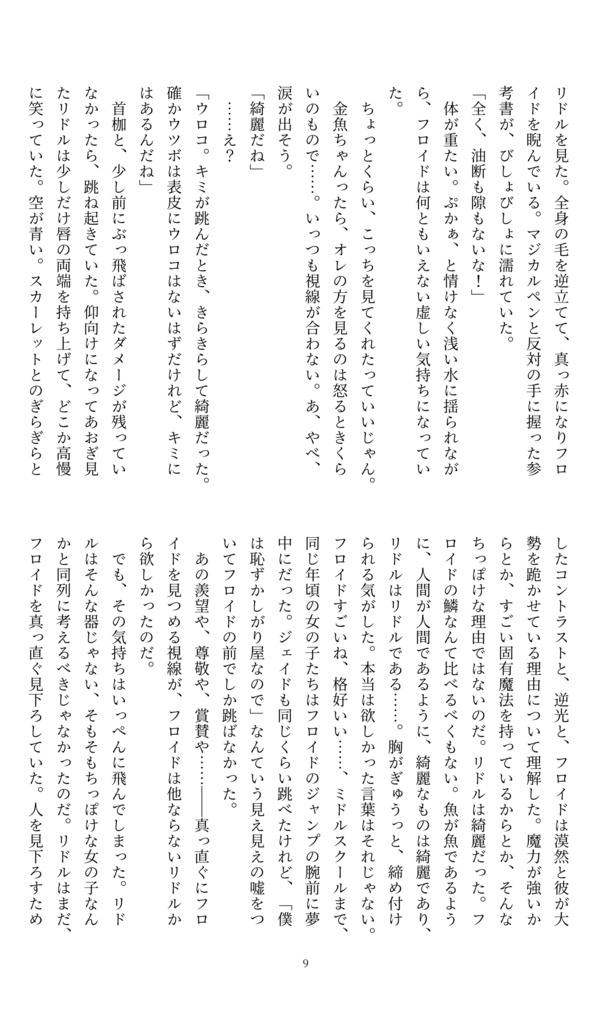 リドルを見た。全身の毛を逆立てて、真っ赤になりフロ
イドを睨んでいる。マジカルペンと反対の手に握った参
考書が、びしょびしょに濡れていた。
「全く、油断も隙もないな！」
体が重たい。ぷかぁ、と情けなく浅い水に揺られなが
ら、フロイドは何ともいえない虚しい気持ちになってい
た。
ちょっとくらい、こっちを見てくれたっていいじゃん。
金魚ちゃんったら、オレの方を見るのは怒るときくら
いのもので……。いっつも視線が合わない。あ、やべ、
涙が出そう。
「綺麗だね」
……え？
「ウロコ。キミが跳んだとき、きらきらして綺麗だった。
確かウツボは表皮にウロコはないはずだけれど、キミに
はあるんだね」
首枷と、少し前にぶっ飛ばされたダメージが残ってい
なかったら、跳ね起きていた。仰向けになってあおぎ見
たリドルは少しだけ唇の両端を持ち上げて、どこか高慢
に笑っていた。空が青い。スカーレットとのぎらぎらと
したコントラストと、逆光と、フロイドは漠然と彼が大
勢を跪かせている理由について理解した。魔力が強いか
らとか、すごい固有魔法を持っているからとか、そんな
ちっぽけな理由ではないのだ。リドルは綺麗だった。フ
ロイドの鱗なんて比べるべくもない。魚が魚であるよう
に、人間が人間であるように、綺麗なものは綺麗であり、
リドルはリドルである……。胸がぎゅうっと、締め付け
られる気がした。本当は欲しかった言葉はそれじゃない。
フロイドすごいね、格好いい……、ミドルスクールまで、
同じ年頃の女の子たちはフロイドのジャンプの腕前に夢
中にだった。ジェイドも同じくらい跳べたけれど、「僕
は恥ずかしがり屋なので」なんていう見え見えの嘘をつ
いてフロイドの前でしか跳ばなかった。
あの羨望や、尊敬や、賞賛や……――真っ直ぐにフロ
イドを見つめる視線が、フロイドは他ならないリドルか
ら欲しかったのだ。
でも、その気持ちはいっぺんに飛んでしまった。リド
ルはそんな器じゃない、そもそもちっぽけな女の子なん
かと同列に考えるべきじゃなかったのだ。リドルはまだ、
フロイドを真っ直ぐ見下ろしていた。人を見下ろすため
9